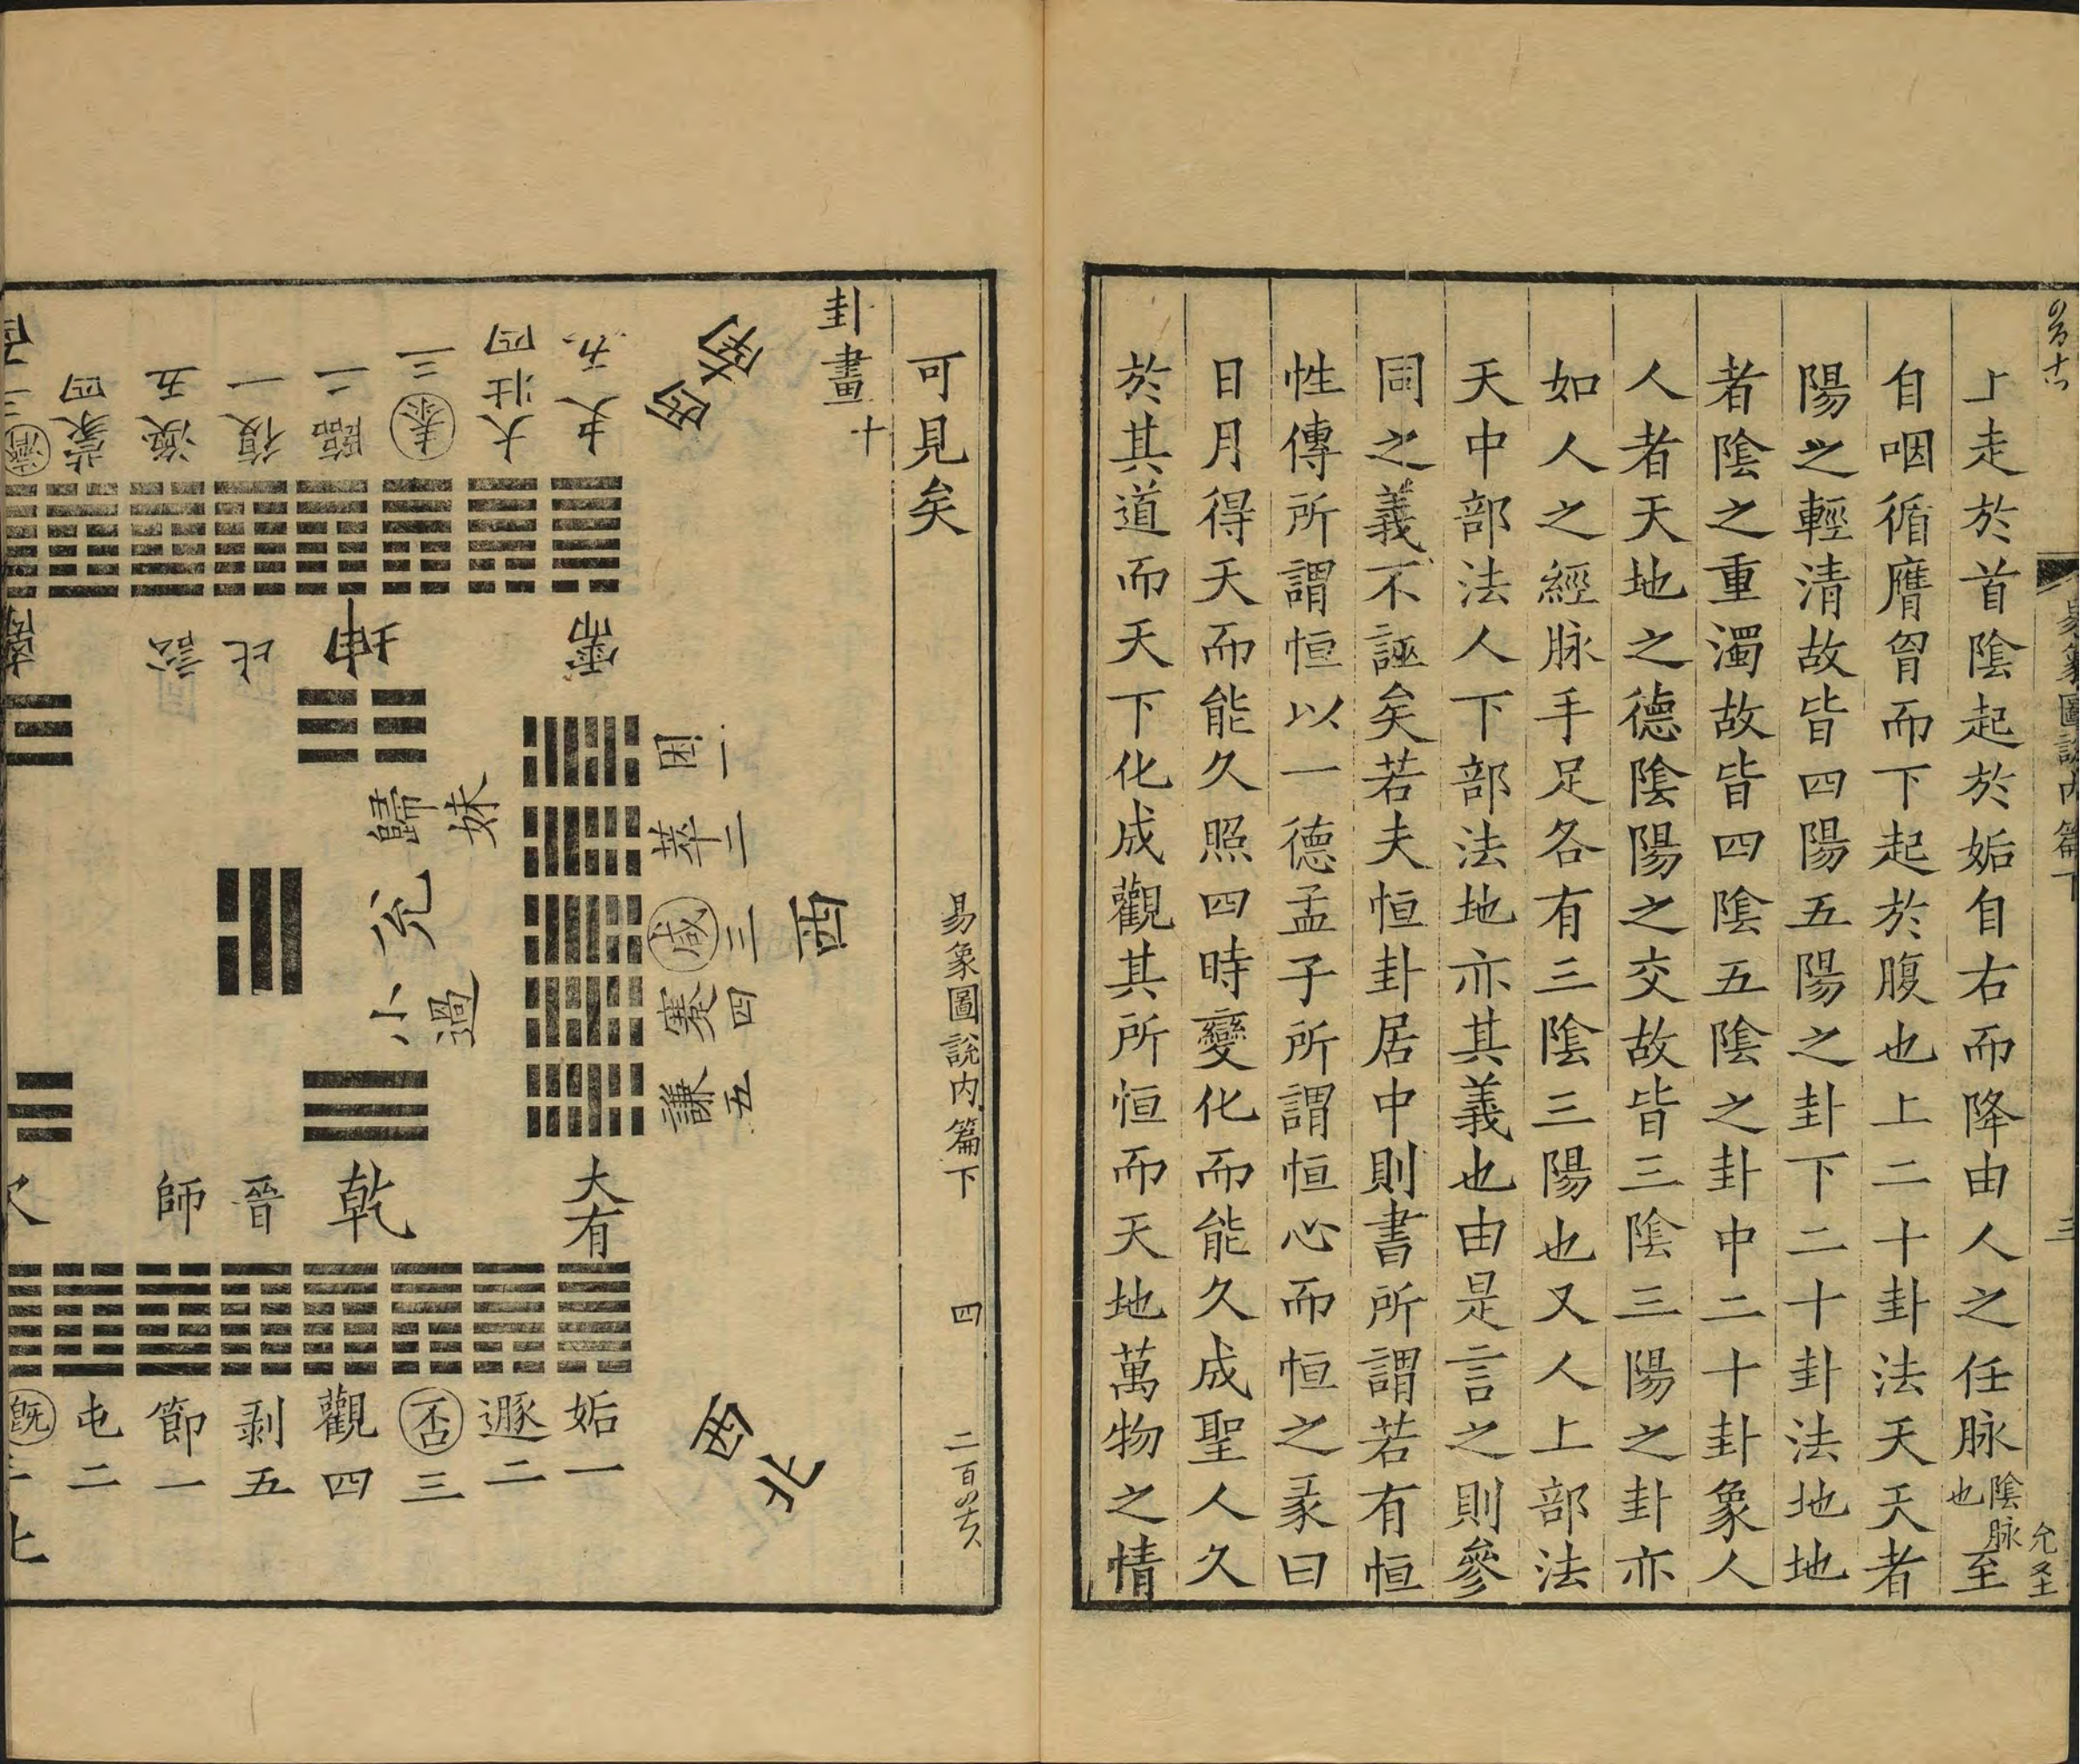 上走於首陰起於姤自右而降由人之任脉陰脉也至
自咽循膺胷而下起於腹也上二十卦法天天者
陽之輕清故皆四陽五陽之卦下二十卦法地地
者陰之重濁故皆四陰五陰之卦中二十卦象人
人者天地之德陰陽之交故皆三陰三陽之卦亦
如人之經脉手足各有三陰三陽也又人上部法
天中部法人下部法地亦其義也由是言之則參
同之義不誣矣若夫恒卦居中則書所謂若有恒
性傳所謂恒以一德孟子所謂恒心而恒之彖曰
日月得天而能久照四時變化而能久成聖人久
於其道而天下化成觀其所恒而天地萬物之情
可見矣
易象圖說内篇下
四
卦畫十
西南
西
西北
夬五
大壯四
泰三
臨二
復一
渙五
蒙四
需
坤
比
訟
困一
萃二
咸三
蹇四
謙五
歸妹
兌
小過
大有
乾
晉
師
姤一
遯二
否三
觀四
剥五
節一
屯二